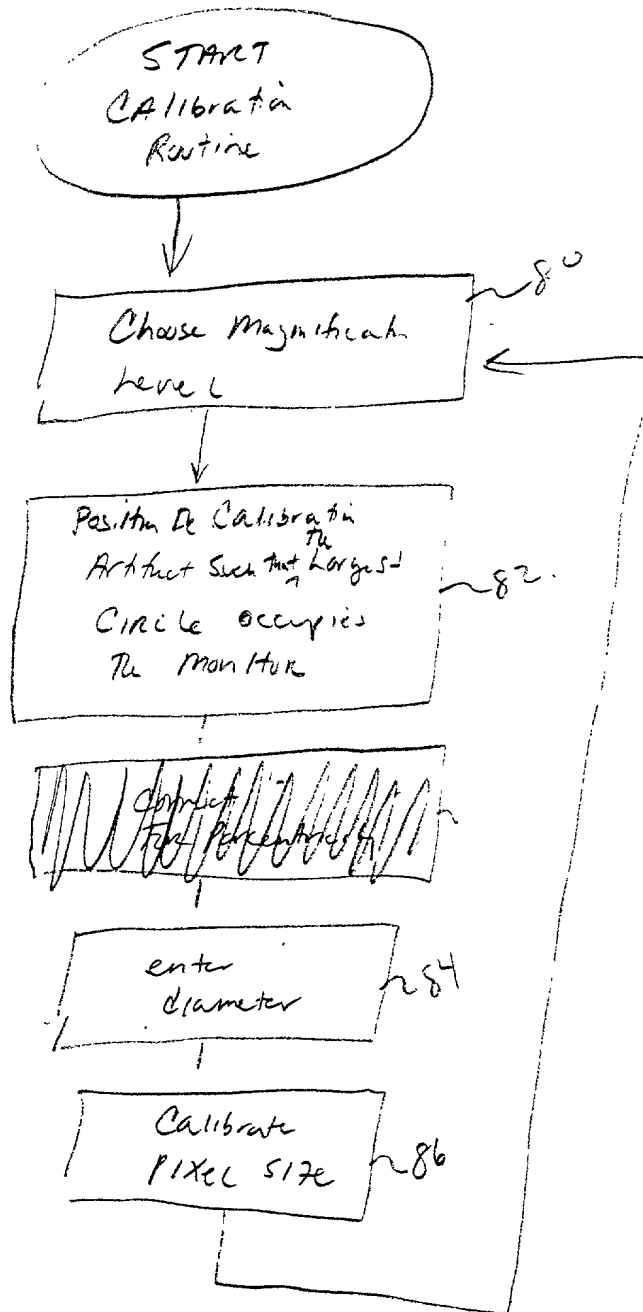 START
CAlibration
Routine
80
Choose Magnification
Level
Position The Calibration
Artifact Such that the Largest
CIRCLE occupies
The Monitor
82.
Correct
For Parcentricity
enter
diameter
84
Calibrate
PIXEL SIZE
86